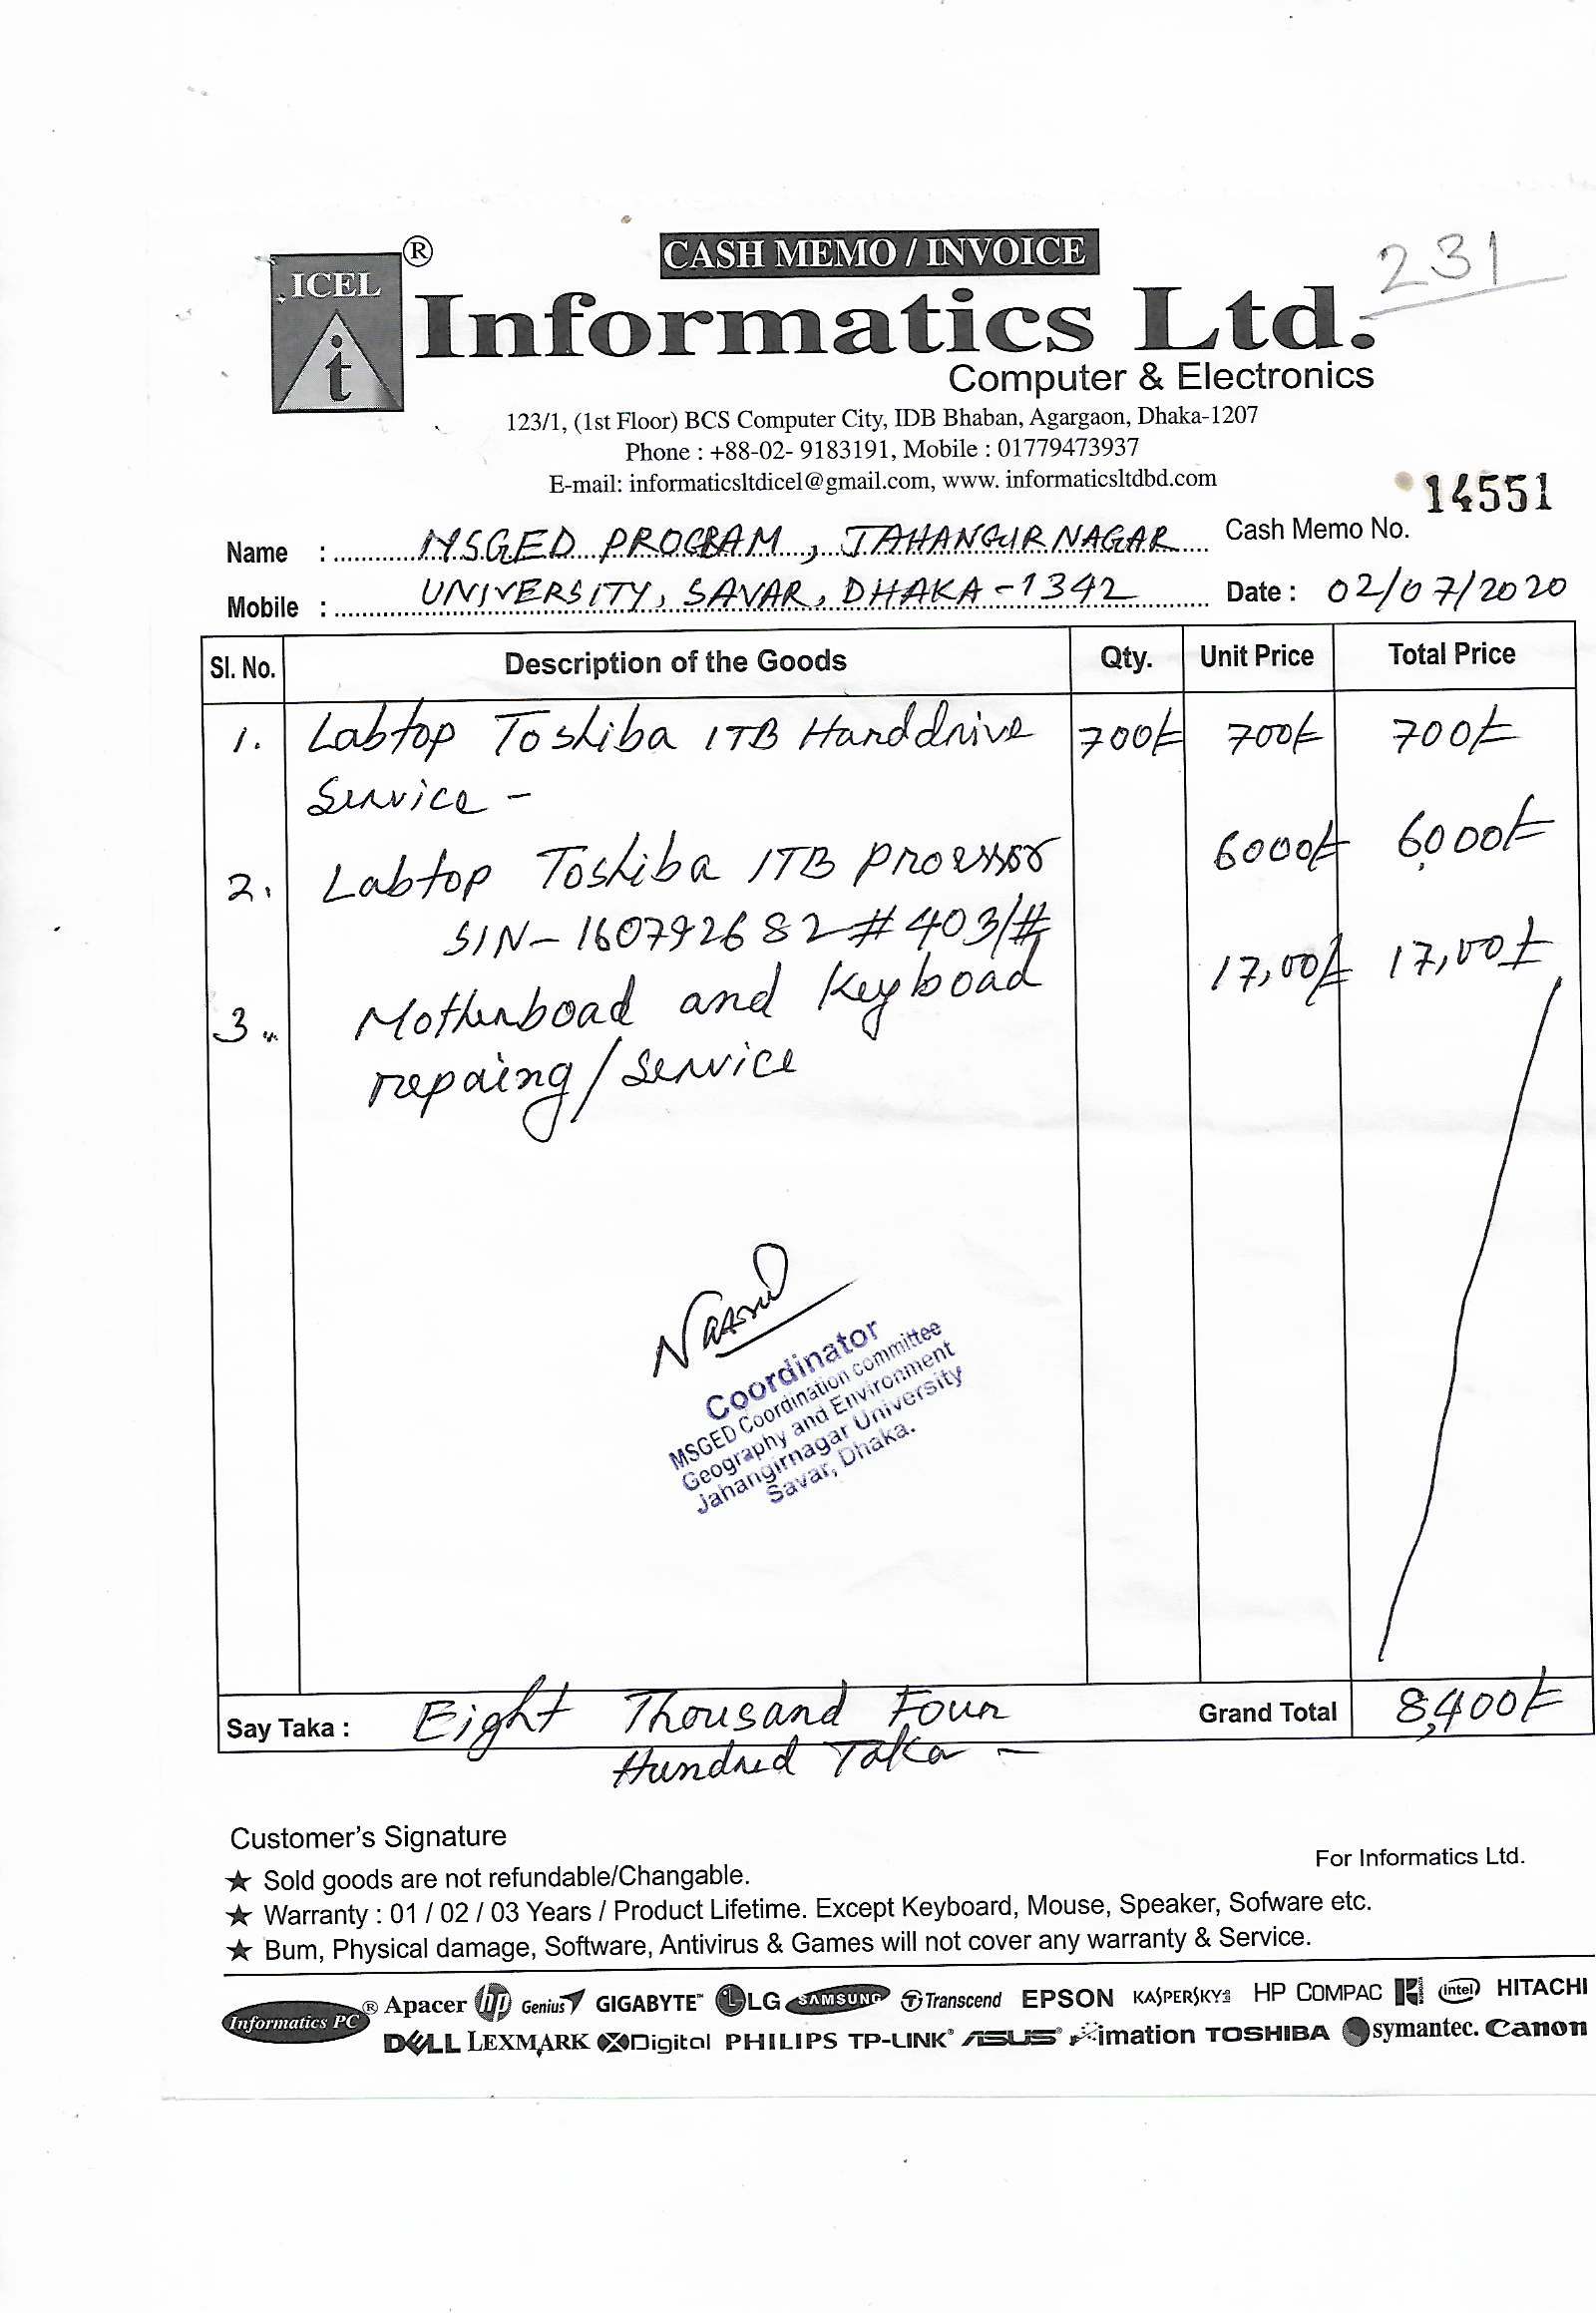 231
CASH MEMO / INVOICE
ICEL ®
i
Informatics Ltd.
Computer & Electronics
123/1, (1st Floor) BCS Computer City, IDB Bhaban, Agargaon, Dhaka-1207
Phone : +88-02- 9183191, Mobile : 01779473937
E-mail: informaticsltdicel@gmail.com, www. informaticsltdbd.com
14551
Name : MSGED PROGRAM, JAHANGIRNAGAR Cash Memo No.
Mobile : UNIVERSITY, SAVAR, DHAKA-1342 Date : 02/07/2020
Sl. No. Description of the Goods Qty. Unit Price Total Price
1. Labtop Toshiba 1TB Harddrive 700/= 700/= 700/=
Service -
2. Labtop Toshiba 1TB Processor 6000/= 6,000/=
SIN-160792682#403/#
3. Motherboad and Keyboad 17,00/= 17,00/=
repaing/service
Coordinator
MSGED Coordination committee
Geography and Environment
Jahangirnagar University
Savar, Dhaka.
Say Taka : Eight Thousand Four Grand Total 8,400/=
Hundred Taka -
Customer's Signature
For Informatics Ltd.
★ Sold goods are not refundable/Changable.
★ Warranty : 01 / 02 / 03 Years / Product Lifetime. Except Keyboard, Mouse, Speaker, Sofware etc.
★ Bum, Physical damage, Software, Antivirus & Games will not cover any warranty & Service.
Informatics PC ® Apacer hp Genius GIGABYTE™ LG SAMSUNG Transcend EPSON KASPERSKY HP COMPAC intel HITACHI
DELL LEXMARK Digital PHILIPS TP-LINK® ASUS® imation TOSHIBA symantec. Canon